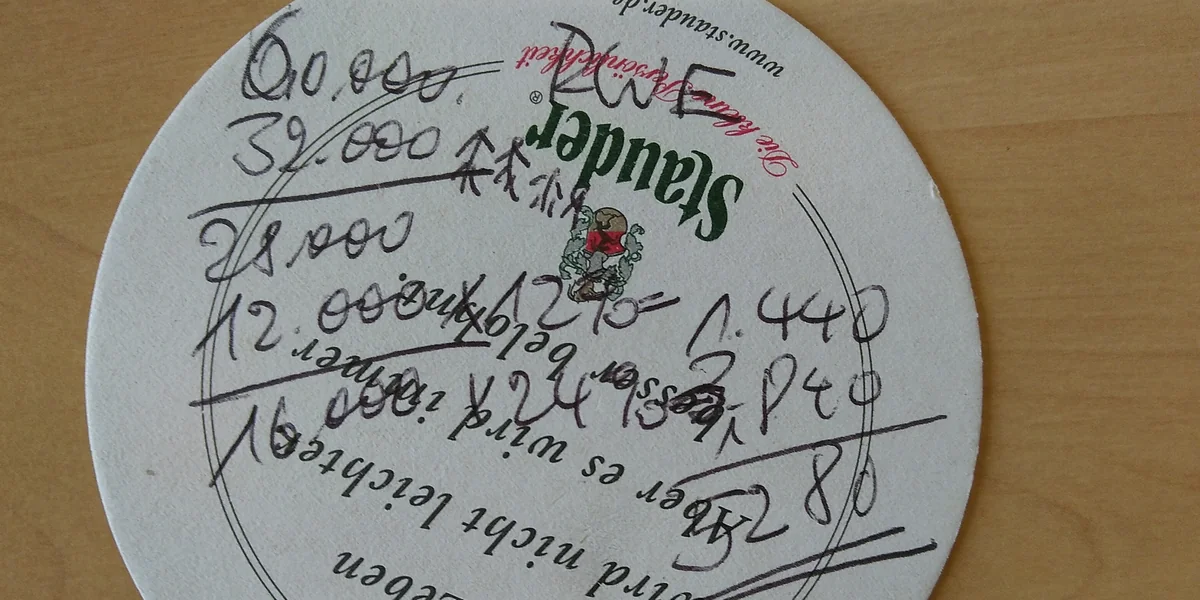 60.000. RWE
32.000
28.000
12.000 x 12%= 1.440
16.000 x 24% 3.840
5280
www.stauder.de
Die kleine Persönlichkeit
Stauder®
besser belohnt.
Aber es wird immer
wird nicht leichter
Leben